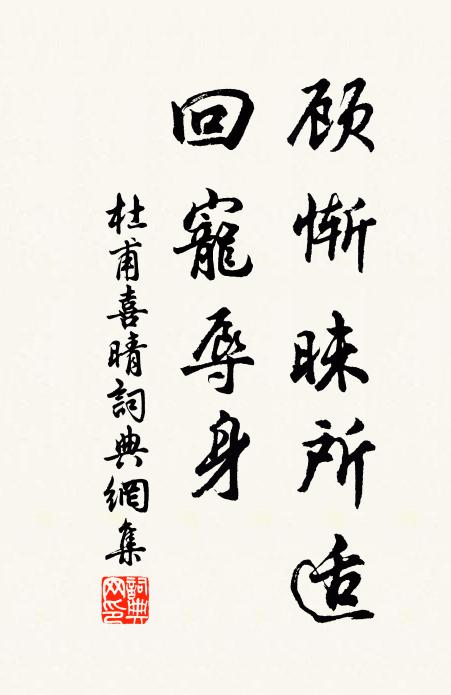 顾惭昧所适
回寵辱身
杜甫喜晴詞典網集
詞典网印